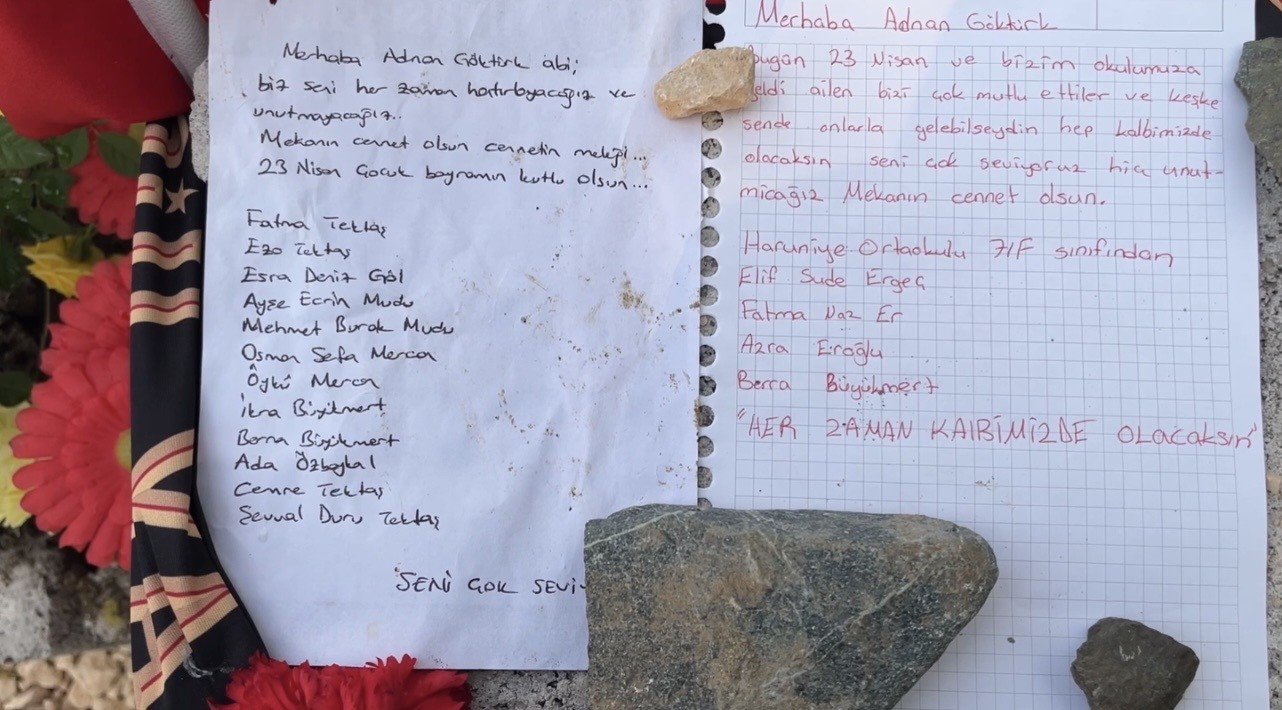 Merhaba Adnan Göktürk abi;
biz seni her zaman hatırlıyacağız ve
unutmayacağız..
Mekanın cennet olsun cennetin meleği...
23 Nisan Çocuk bayramın kutlu olsun...
Fatma Tektaş
Ezo Tektaş
Esra Deniz Göl
Ayşe Ecrin Mudu
Mehmet Burak Mudu
Osman Sefa Mercan
Öykü Mercan
İkra Büyükmert
Berra Büyükmert
Ada Özbaykal
Cemre Tektaş
Şevval Duru Tektaş
SENİ ÇOK SEVİ
Merhaba Adnan Göktürk
Bugün 23 Nisan ve bizim okulumuza
geldi ailen bizi çok mutlu ettiler ve keşke
sende onlarla gelebilseydin hep kalbimizde
olacaksın seni çok seviyoruz hiç unut-
micağız Mekanın cennet olsun.
Haruniye Ortaokulu 7/F sınıfından
Elif Sude Ergeç
Fatma Naz Er
Azra Eroğlu
Berra Büyükmert
"HER ZAMAN KALBİMİZDE OLACAKSIN"